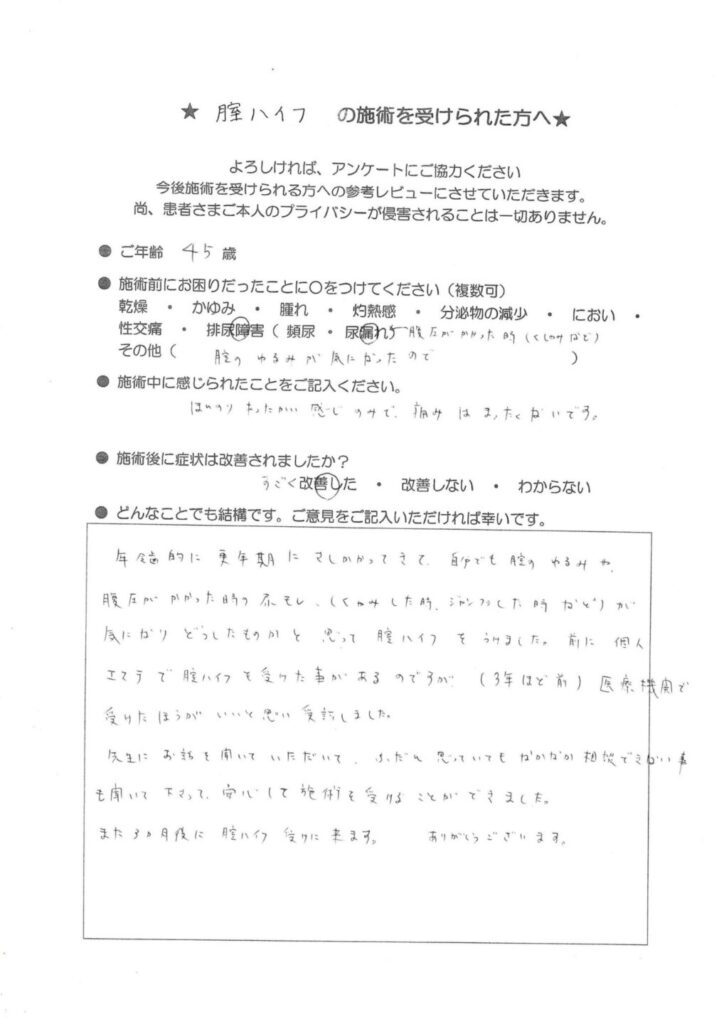 ★ 膣ハイフ の施術を受けられた方へ★
よろしければ、アンケートにご協力ください
今後施術を受けられる方への参考レビューにさせていただきます。
尚、患者さまご本人のプライバシーが侵害されることは一切ありません。
● ご年齢 45 歳
● 施術前にお困りだったことに〇をつけてください（複数可）
乾燥 ・ かゆみ ・ 腫れ ・ 灼熱感 ・ 分泌物の減少 ・ におい ・
性交痛 ・ 排尿障害（ 頻尿 ・ 尿漏れ） 腹圧がかかった時（くしゃみなど）
その他（ 膣の ゆるみが 気になったので ）
● 施術中に感じられたことをご記入ください。
ほんのり あったかい 感じ のみで、痛み は まったく ないです。
● 施術後に症状は改善されましたか？
すごく 改善した ・ 改善しない ・ わからない
● どんなことでも結構です。ご意見をご記入いただければ幸いです。
年齢的に 更年期に さしかかってきて、自分でも 膣の ゆるみや、
腹圧が かかった時の 尿モレ、（くしゃみした時、ジャンプした時 など）が
気になり どうしたものか と 思って 膣ハイフ を うけました。前に 個人
エステ で 膣ハイフを 受けた事が あるのですが、（3年ほど前） 医療機関で
受けたほうが いいと思い 受診しました。
先生に お話を聞いて いただいて、ふだん 思っていても なかなか 相談できない事
も聞いて 下さって、安心して 施術を 受けることが できました。
また 3ヵ月後に 膣ハイフ 受けに 来ます。 ありがとうございます。